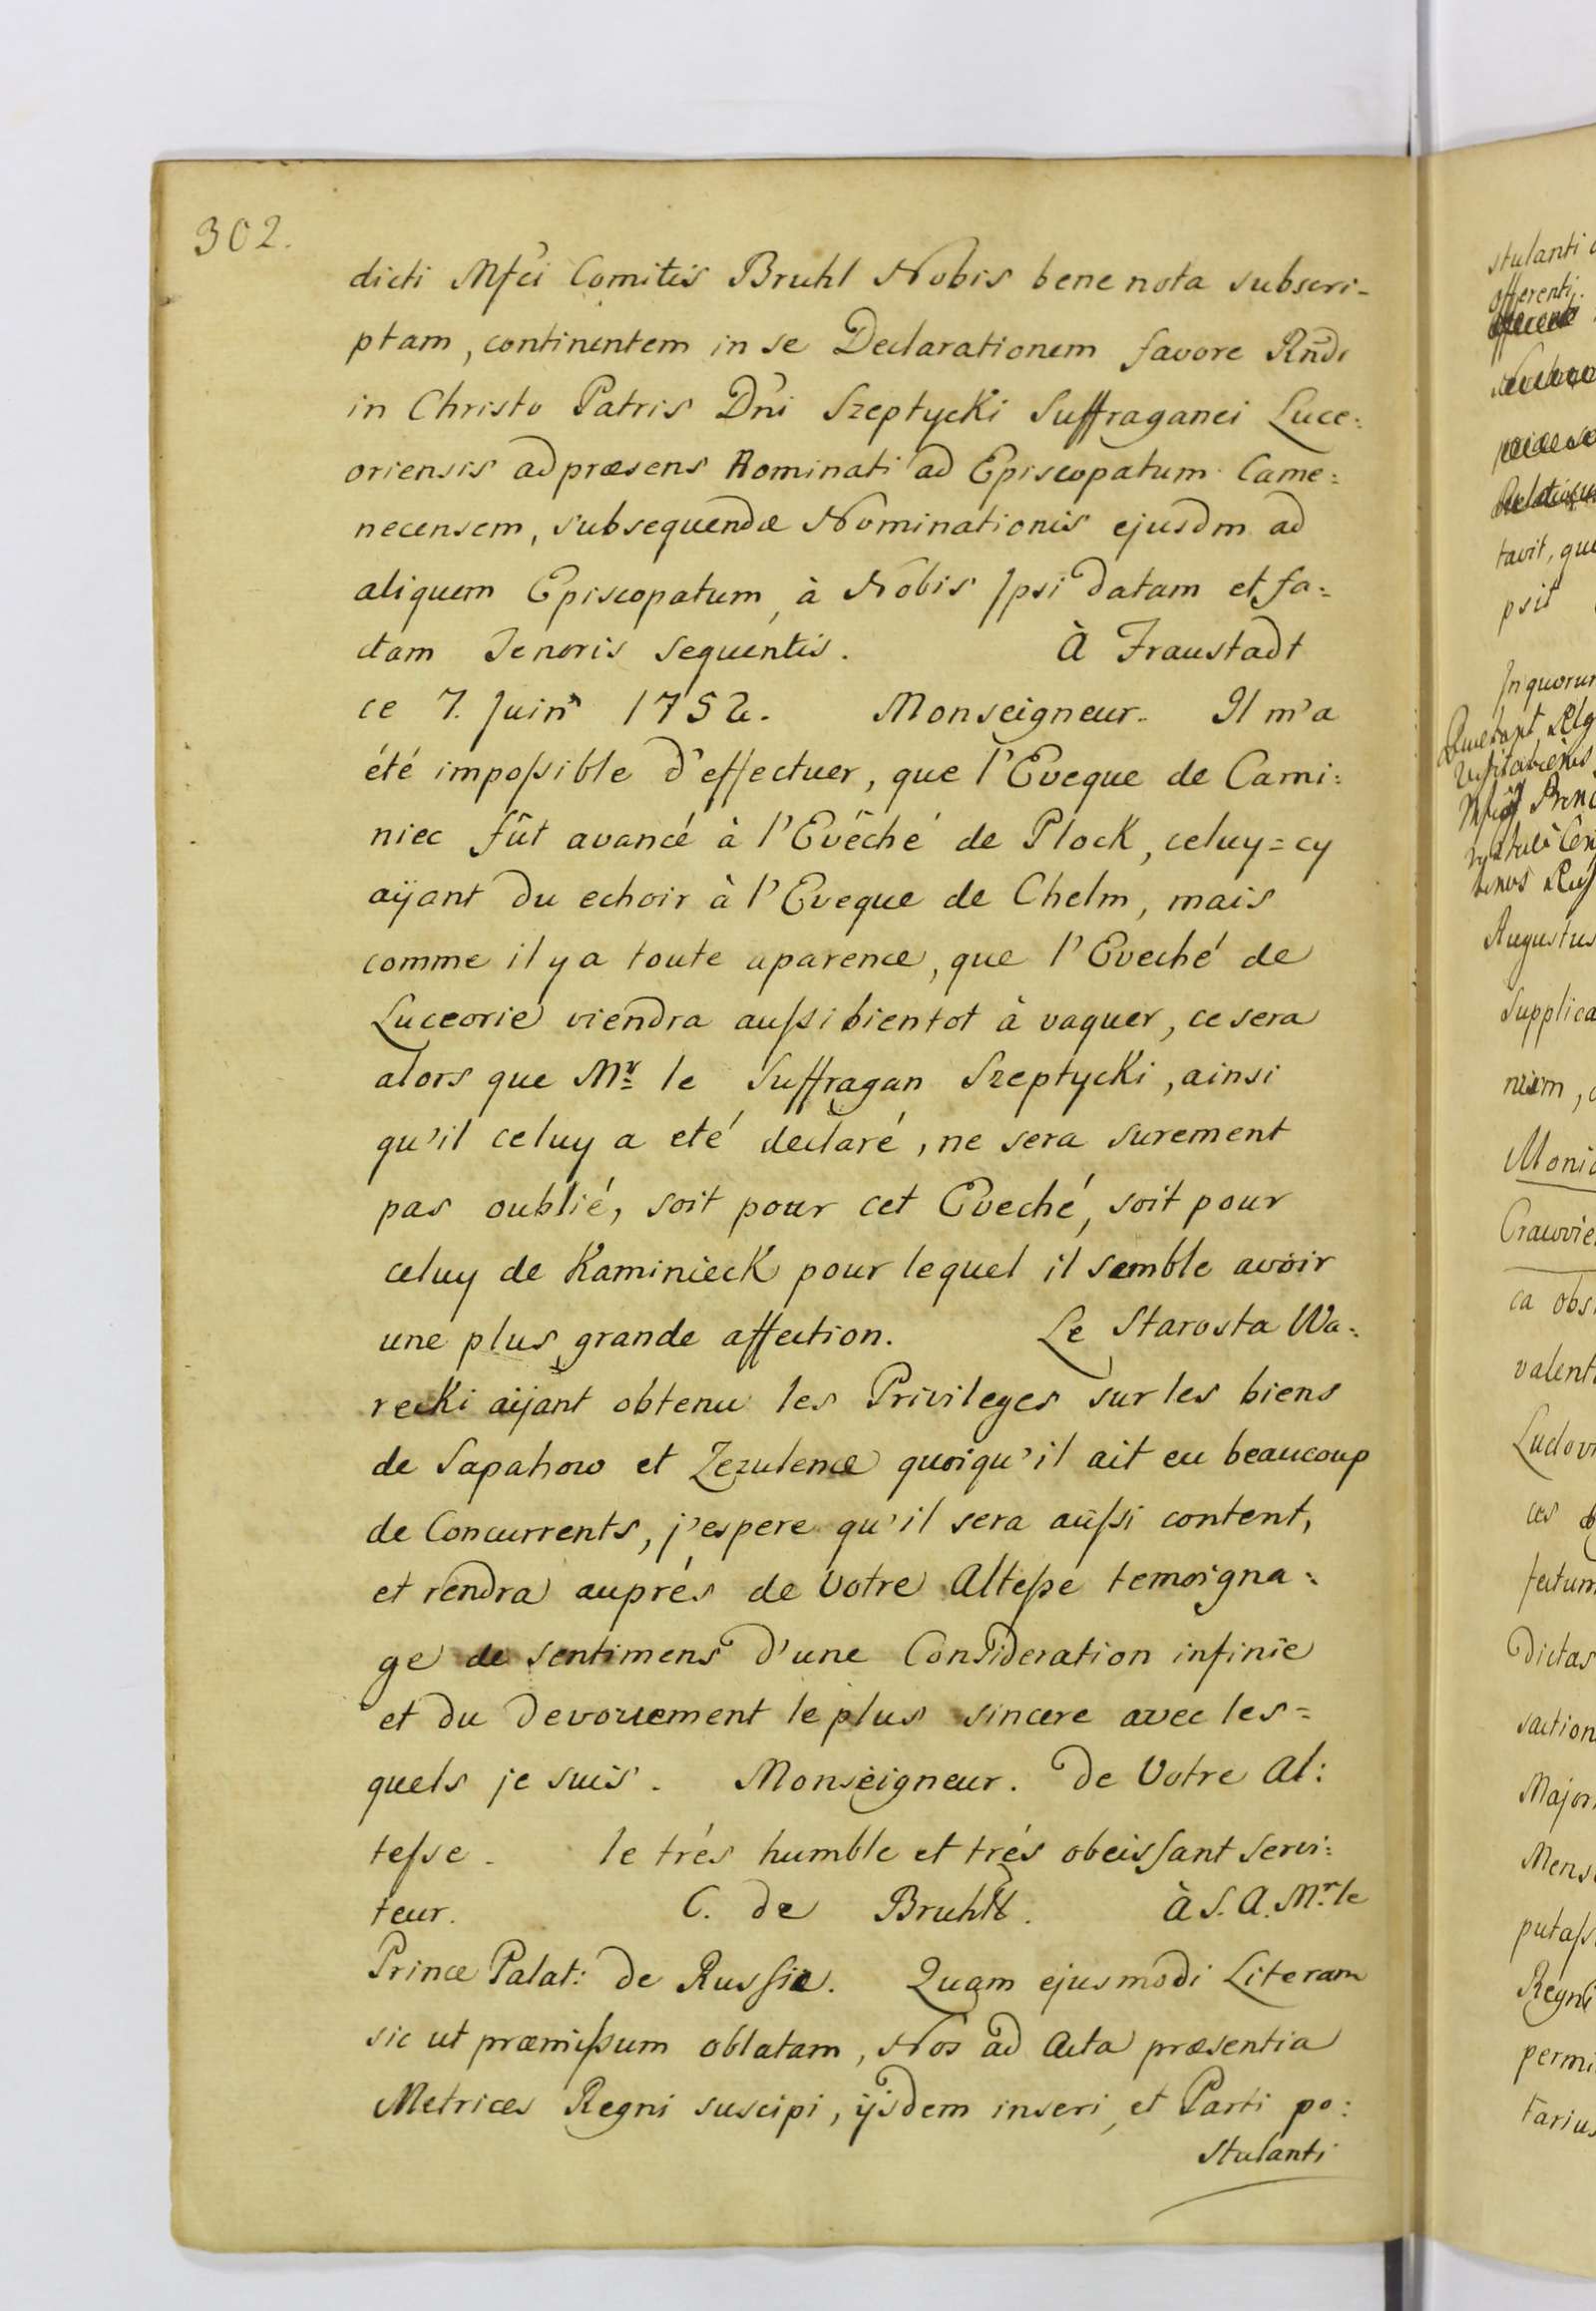 302.
dicti Mfci Comitis Bruhl Nobis bene nota subscri-
ptam, continentem in se Declarationem favore Rndi
in Christo Patris Dni Szeptycki Suffraganei Luce:
oriensis ad præsens Nominati ad Episcopatum Came:
necensem, subsequendæ Nominationis ejusdm ad
aliquem Episcopatum, à Nobis Ipsi datam et fa:
ctam Tenoris sequentis. À Fraustadt
ce 7. Juin 1752. Monseigneur. Il m'a
été impossible d'effectuer, que l'Eveque de Cami:
niec fût avancé à l'Evêché de Plock, celuy=cy
aÿant du echoir à l'Eveque de Chelm, mais
comme il y a toute aparence, que l'Eveché de
Luceorie viendra aussi bientot à vaquer, ce sera
alors que Mr. le Suffragan Szeptycki, ainsi
qu'il celuy a eté declaré, ne sera surement
pas oublié, soit pour cet Eveché, soit pour
celuy de Kaminieck pour lequel il semble avoir
une plus grande affection. Le Starosta Wa:
recki aÿant obtenu les Privileges sur les biens
de Sapahow et Zezulence quoiqu'il ait eu beaucoup
de Concurrents, j'espere qu'il sera aussi content,
et rendra auprés de Votre Altesse temoigna:
ge de sentimens d'une Consideration infinie
et du Devouement le plus sincere avec les=
quels je suis. Monseigneur. De Votre Al:
tesse. le trés humble et trés obeissant Servi:
teur. C. de Bruhl. À S. A. Mr. le
Prince Palat: de Russie. Quam ejusmodi Literam
sic ut præmissum oblatam, Nos ad Acta præsentia
Metrices Regni suscipi, ijsdem inseri, et Parti po:
stulanti
stulanti
offerenti.
tavit, que
psit
Augustus
Supplica
valent
Ludovi
Dictas
Major
Regni
permi
tarius